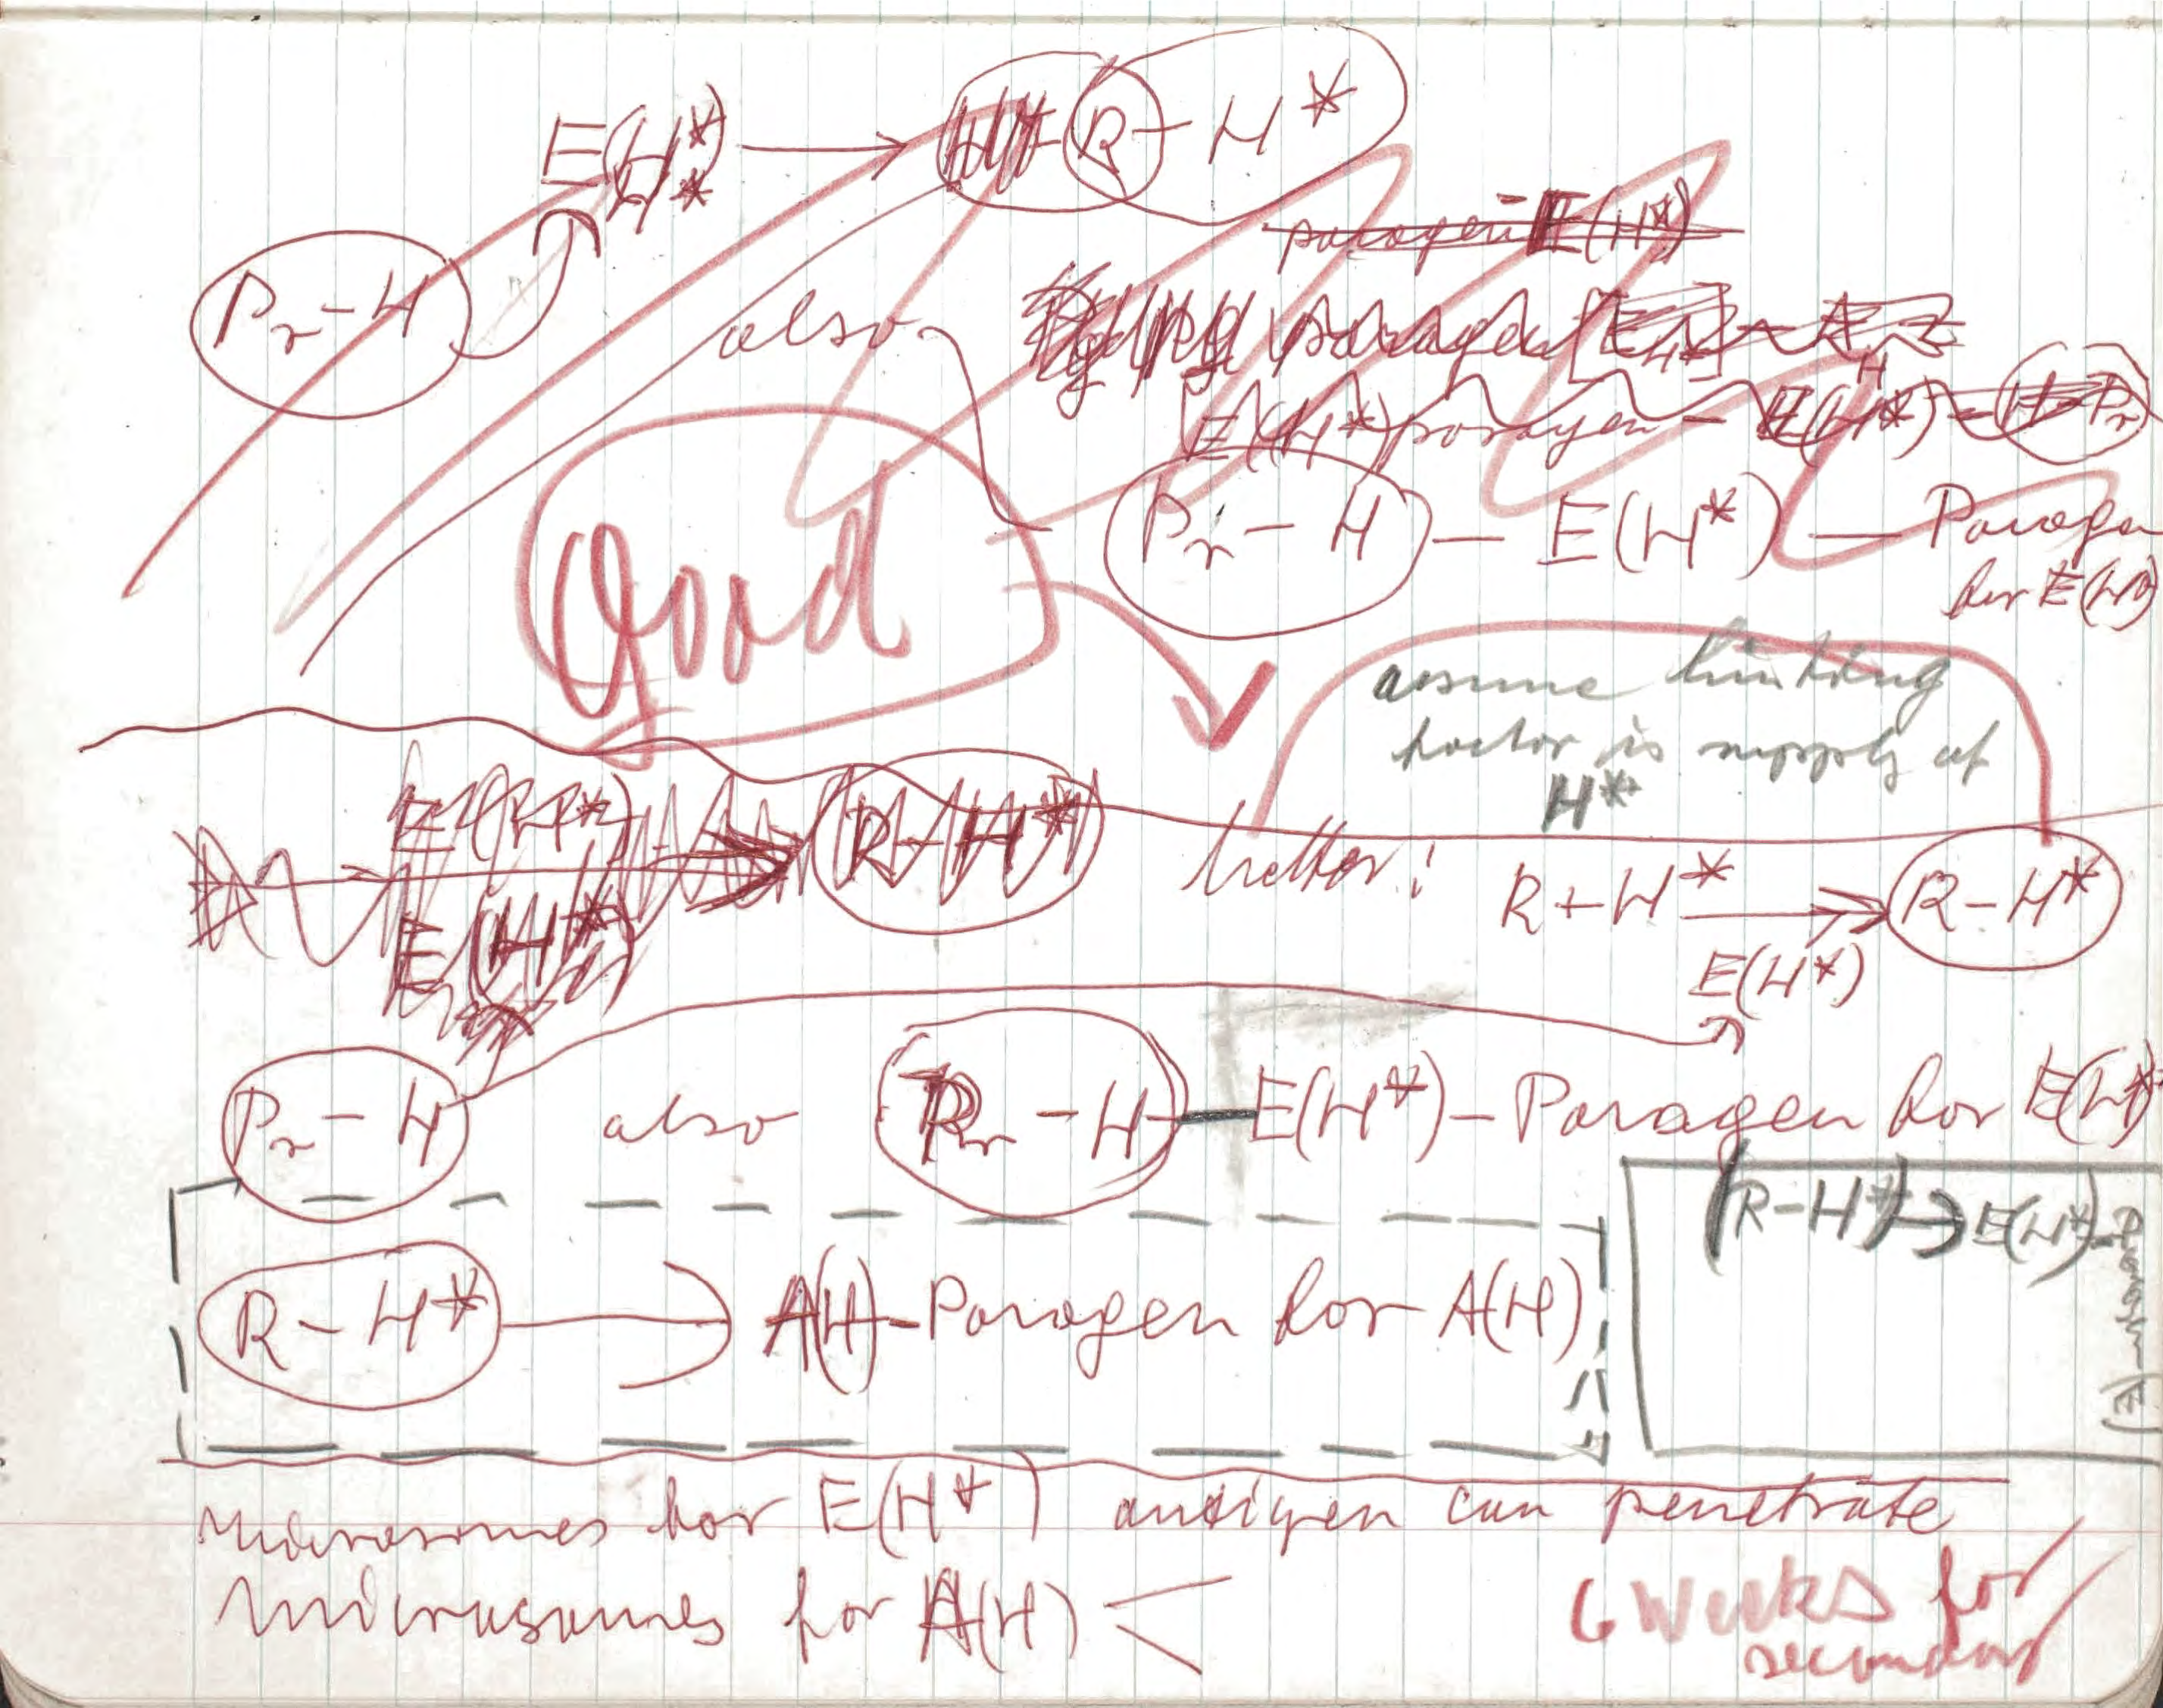 E(H*) → R - H*
*
Pr - H
paragen E(H*)
also
E(H*) paragen - E(H*) - H - Pr
Pr - H - E(H*) - Paragen
for E(H)
Good
assume limiting
factor is supply of
H*
E(H*) R - H*
E(H*)
better: R + H* → R - H*
E(H*)
Pr - H also Pr - H - E(H*) - Paragen for E(H*
(R - H*) → E(H*) -
R - H* → A(H) - Paragen for A(H)
microsomes for E(H*) antigen can penetrate
microsomes for A(H) <
6 Weeks for
secondary